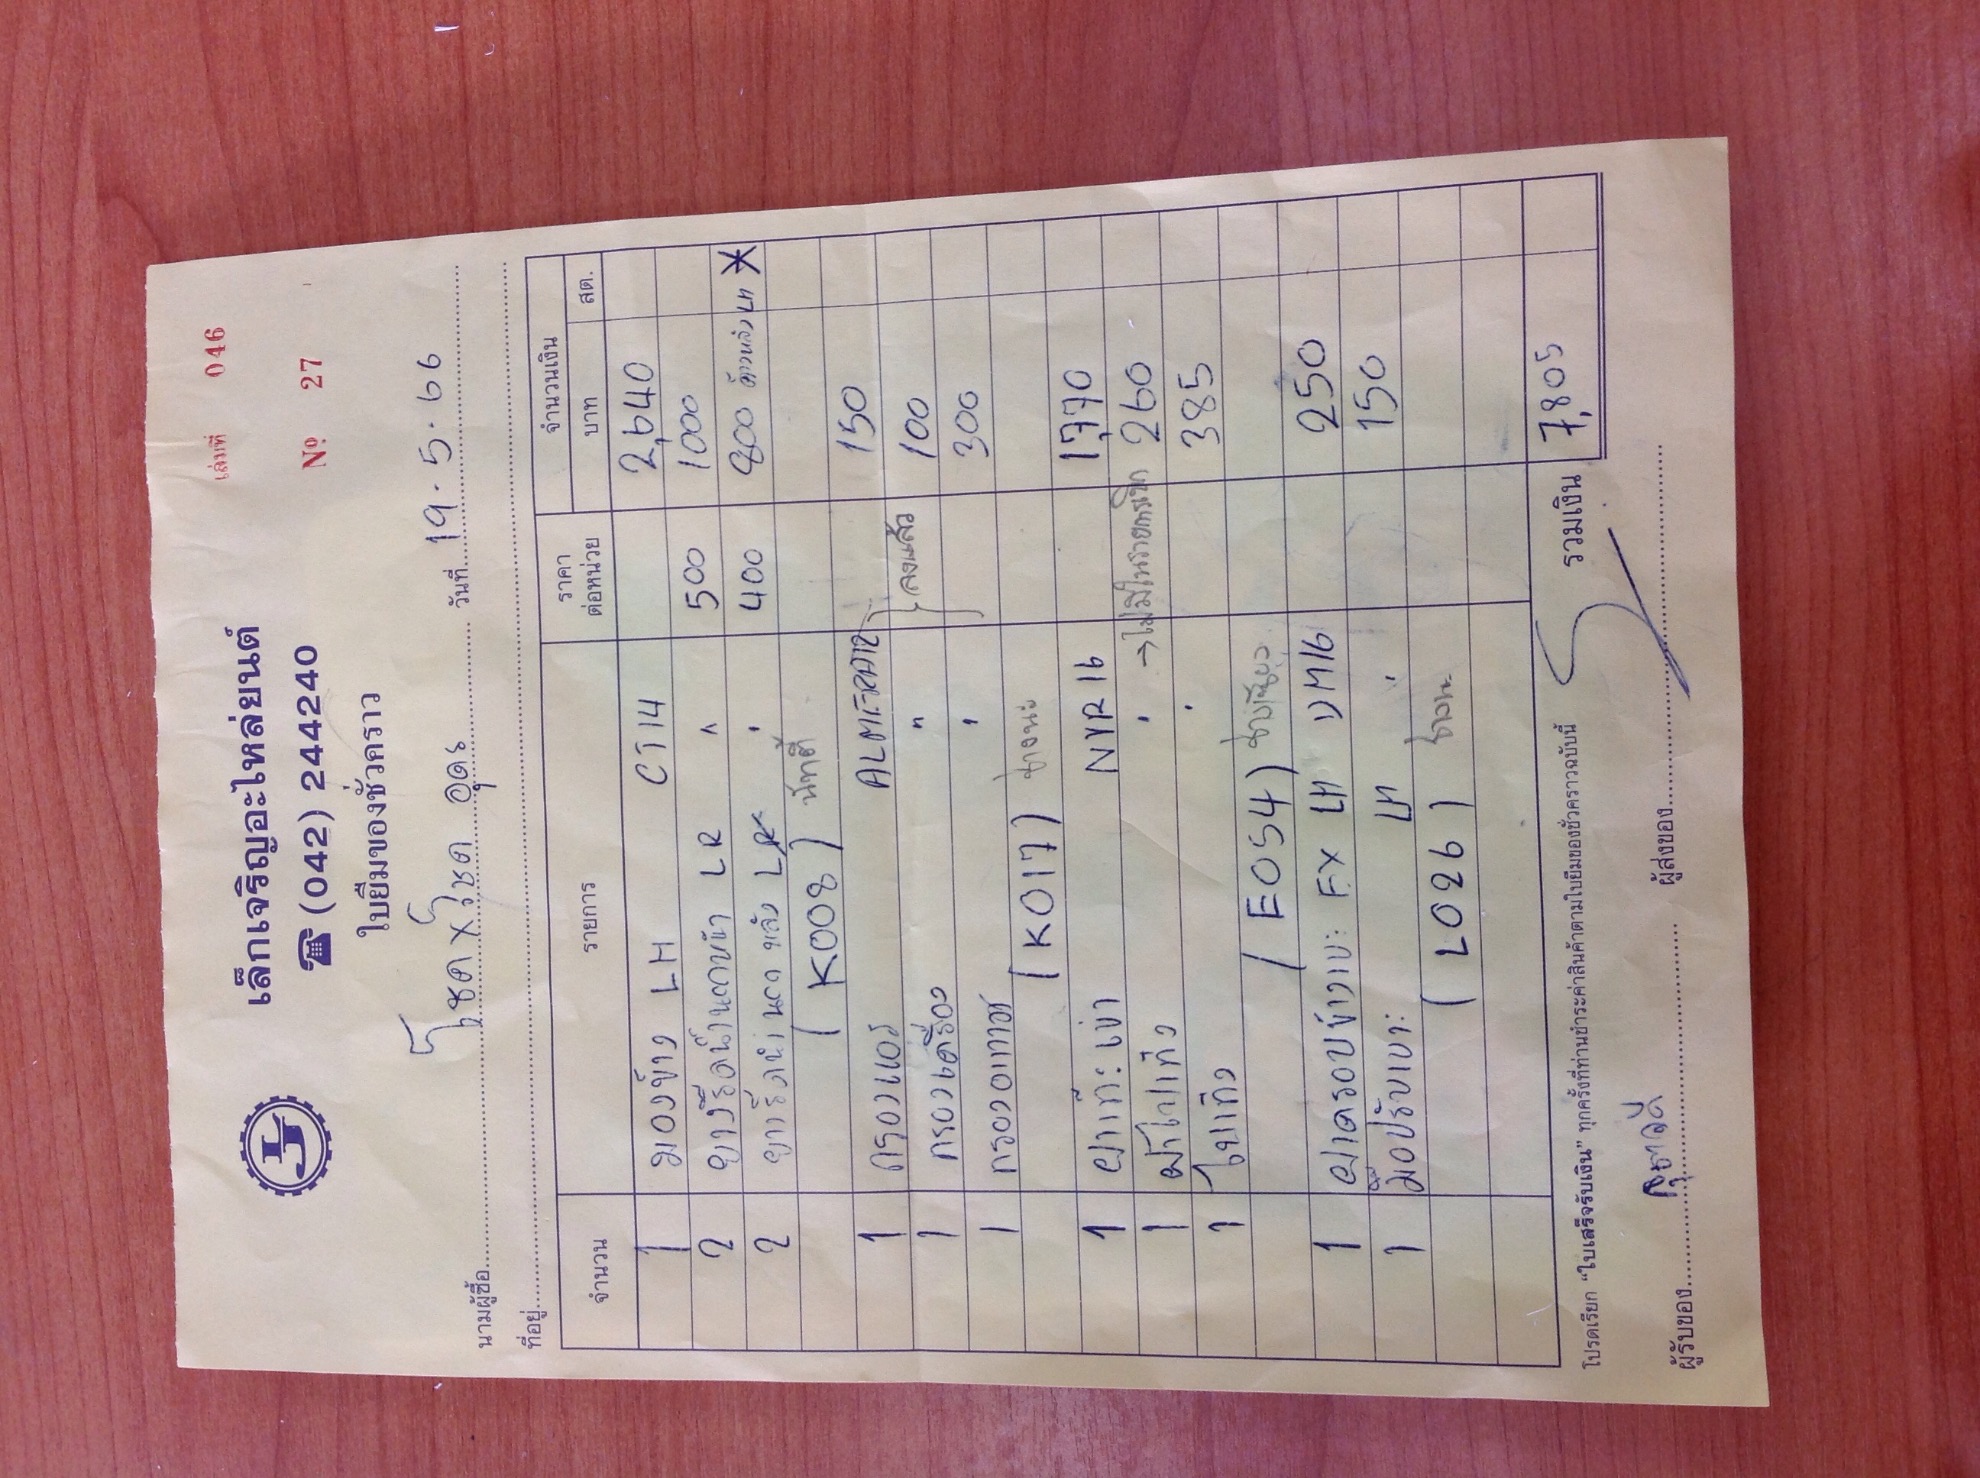 เล่มที่ 046
เล็กเจริญอะไหล่ยนต์
☎ (042) 244240
№ 27
ใบยืมของชั่วคราว
นามผู้ซื้อ โชค X โชค อุดร วันที่ 19.5.66
ที่อยู่
จำนวน รายการ ราคาต่อหน่วย จำนวนเงิน
บาท สต.
1 มองข้าง LH CT14 2,640
2 ยางรีดน้ำนอกหน้า LR " 500 1000
2 ยางรีดน้ำนอก หลัง LR " 400 800
(K008)
1 กรองแอร์ ALMERA12 150
1 กรองเครื่อง " } ลงแล้ว 100
1 กรองอากาศ " 300
(K017)
1 NYR16 1,770
1 " →ไม่มีในรายการเบิก 260
1 " 385
(E054)
1 FX LH DM16 250
1 มือปรับเบาะ LH " 150
(L026)
รวมเงิน 7,805
โปรดเรียก "ใบเสร็จรับเงิน" ทุกครั้งที่ท่านชำระค่าสินค้าตามใบยืมของชั่วคราวฉบับนี้
ผู้รับของ ผู้ส่งของ